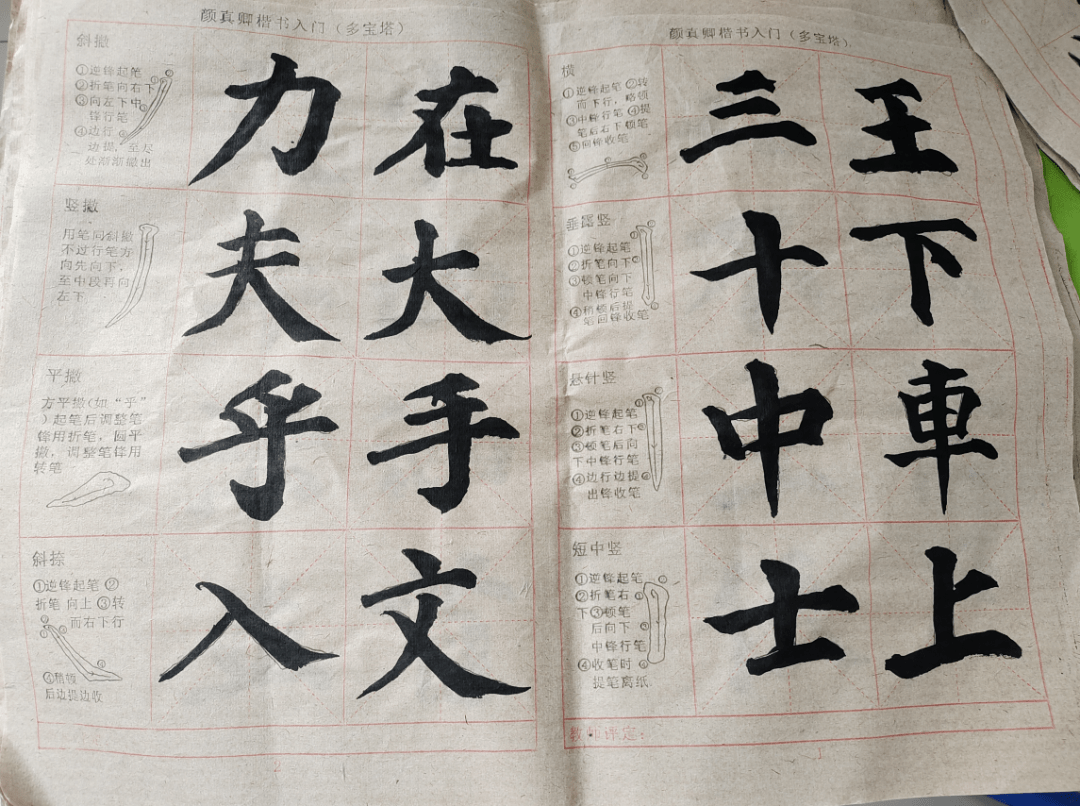 颜真卿楷书入门（多宝塔）
斜撇
①逆锋起笔
②折笔向右下
③向左下中
锋行笔
④边行
边提，至尽
处渐渐撇出
力 在
竖撇
用笔同斜撇
不过行笔方
向先向下，
至中段再向
左下
夫 大
平撇
方平撇(如“乎”
)起笔后调整笔
锋用折笔，圆平
撇，调整笔锋用
转笔
乎 手
斜捺
①逆锋起笔 ②
折笔 向上 ③转
而右下行
④稍顿
后边提边收
入 文
颜真卿楷书入门（多宝塔）
横
①逆锋起笔 ②转
而下行，略顿
③中锋行笔 ④提
笔后右下顿笔
⑤回锋收笔
三 王
垂露竖
①逆锋起笔
②折笔向下
③顿笔向下
中锋行笔
④稍顿后提
笔回锋收笔
十 下
悬针竖
①逆锋起笔
②折笔右下
③顿笔后向
下中锋行笔
④边行边提
出锋收笔
中 車
短中竖
①逆锋起笔
②折笔右
下③顿笔
后向下
中锋行笔
④收笔时
提笔离纸
士 上
教师评定：